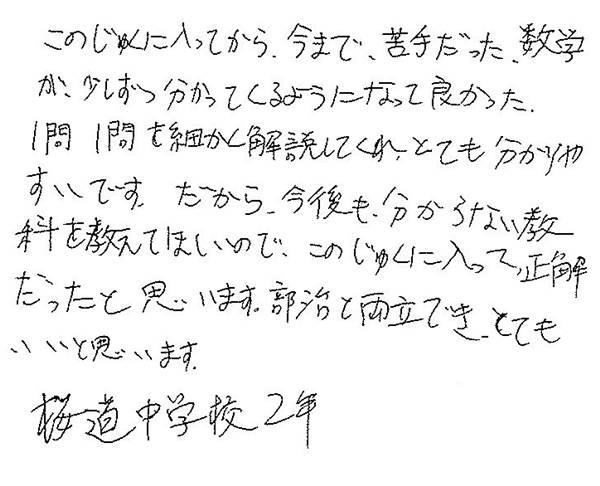 このじゅくに入ってから、今まで、苦手だった、数学
が、少しずつ分かってくるようになって良かった。
1問1問を細かく解説してくれ、とても分かりや
すいです。だから、今後も、分からない教
科を教えてほしいので、このじゅくに入って、正解
だったと思います。部治と両立でき、とても
いいと思います。
桜道中学校2年